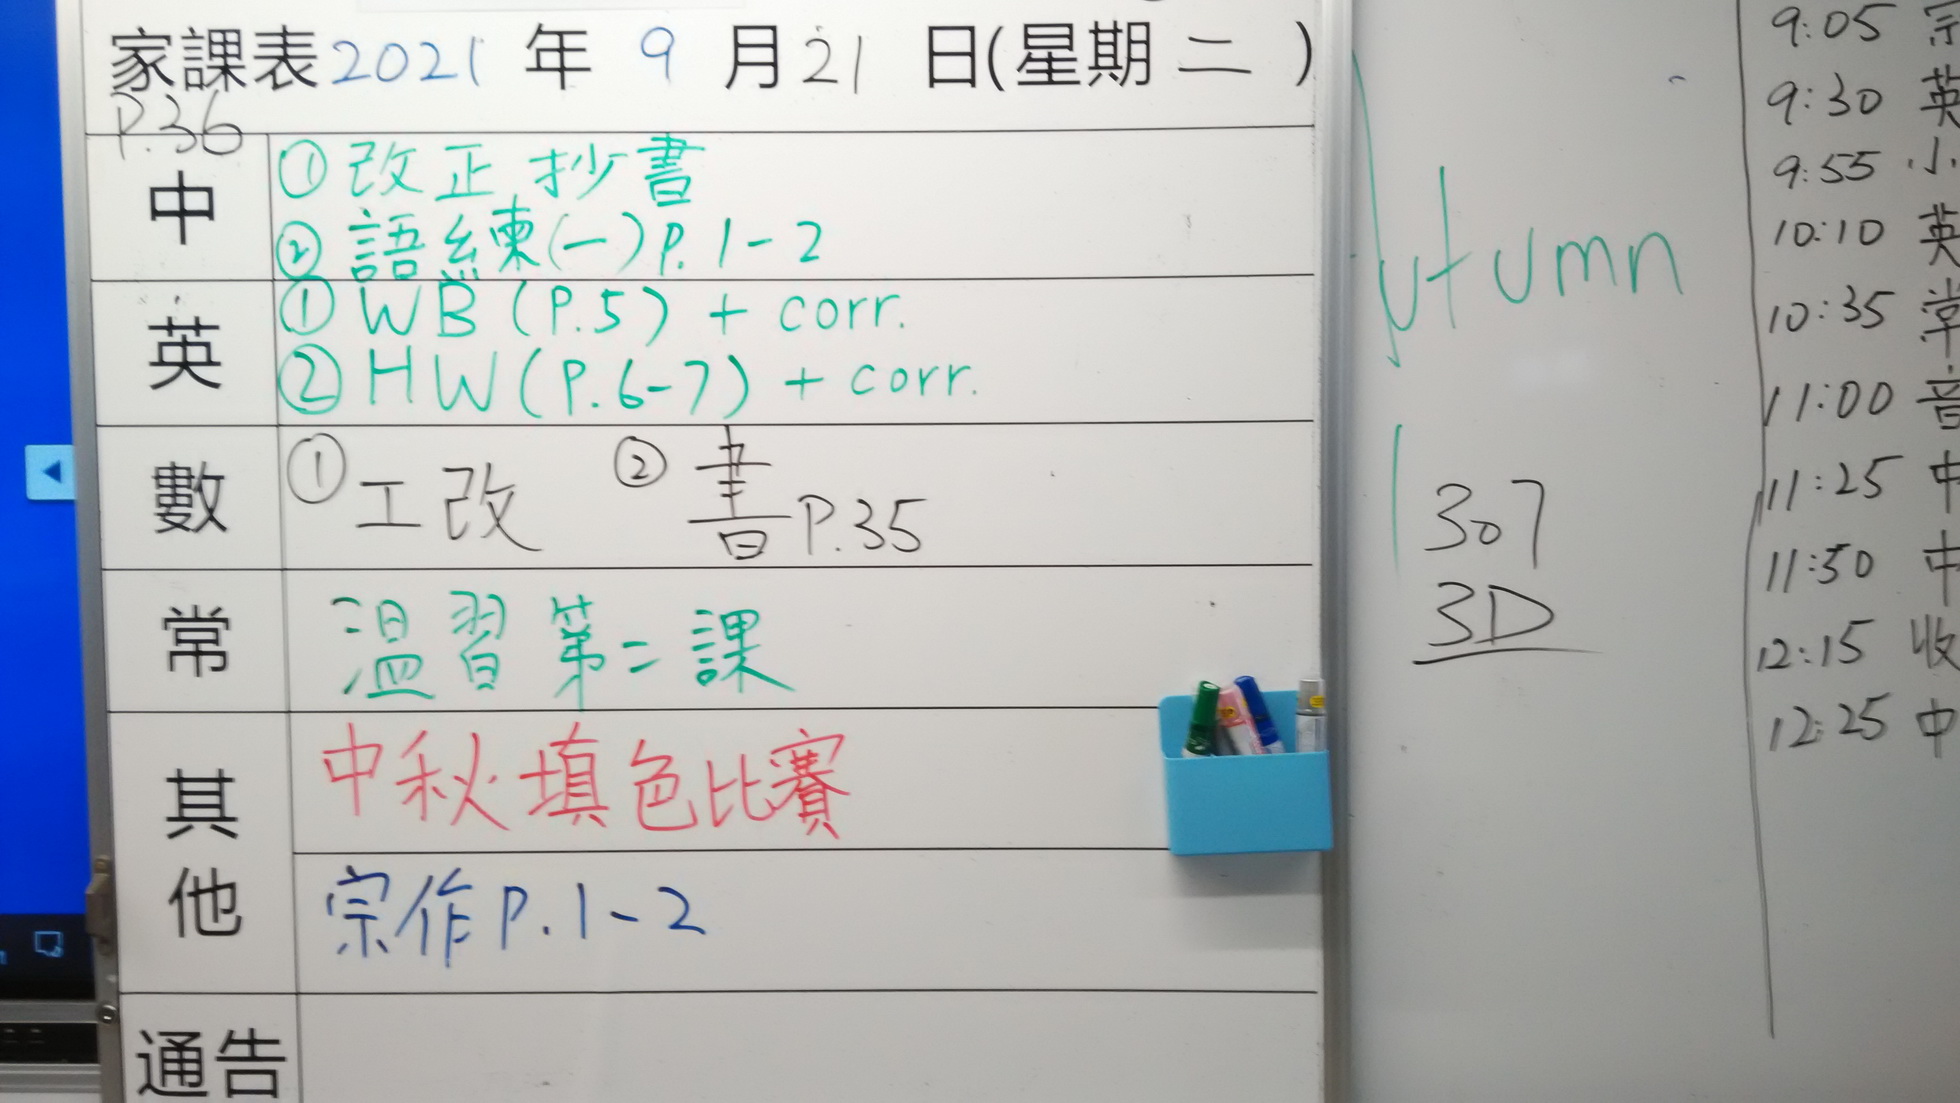 家課表2021年9月21日(星期二)
P.36
中
①改正抄書
②語練(一)P.1-2
英
①WB(P.5)+corr.
②HW(P.6-7)+corr.
數
①工改 ②書P.35
常
溫習第二課
其他
中秋填色比賽
宗作P.1-2
通告
Autumn
307
3D
9:05 宗
9:30 英
9:55 小
10:10 英
10:35 常
11:00 音
11:25 中
11:50 中
12:15 收
12:25 中